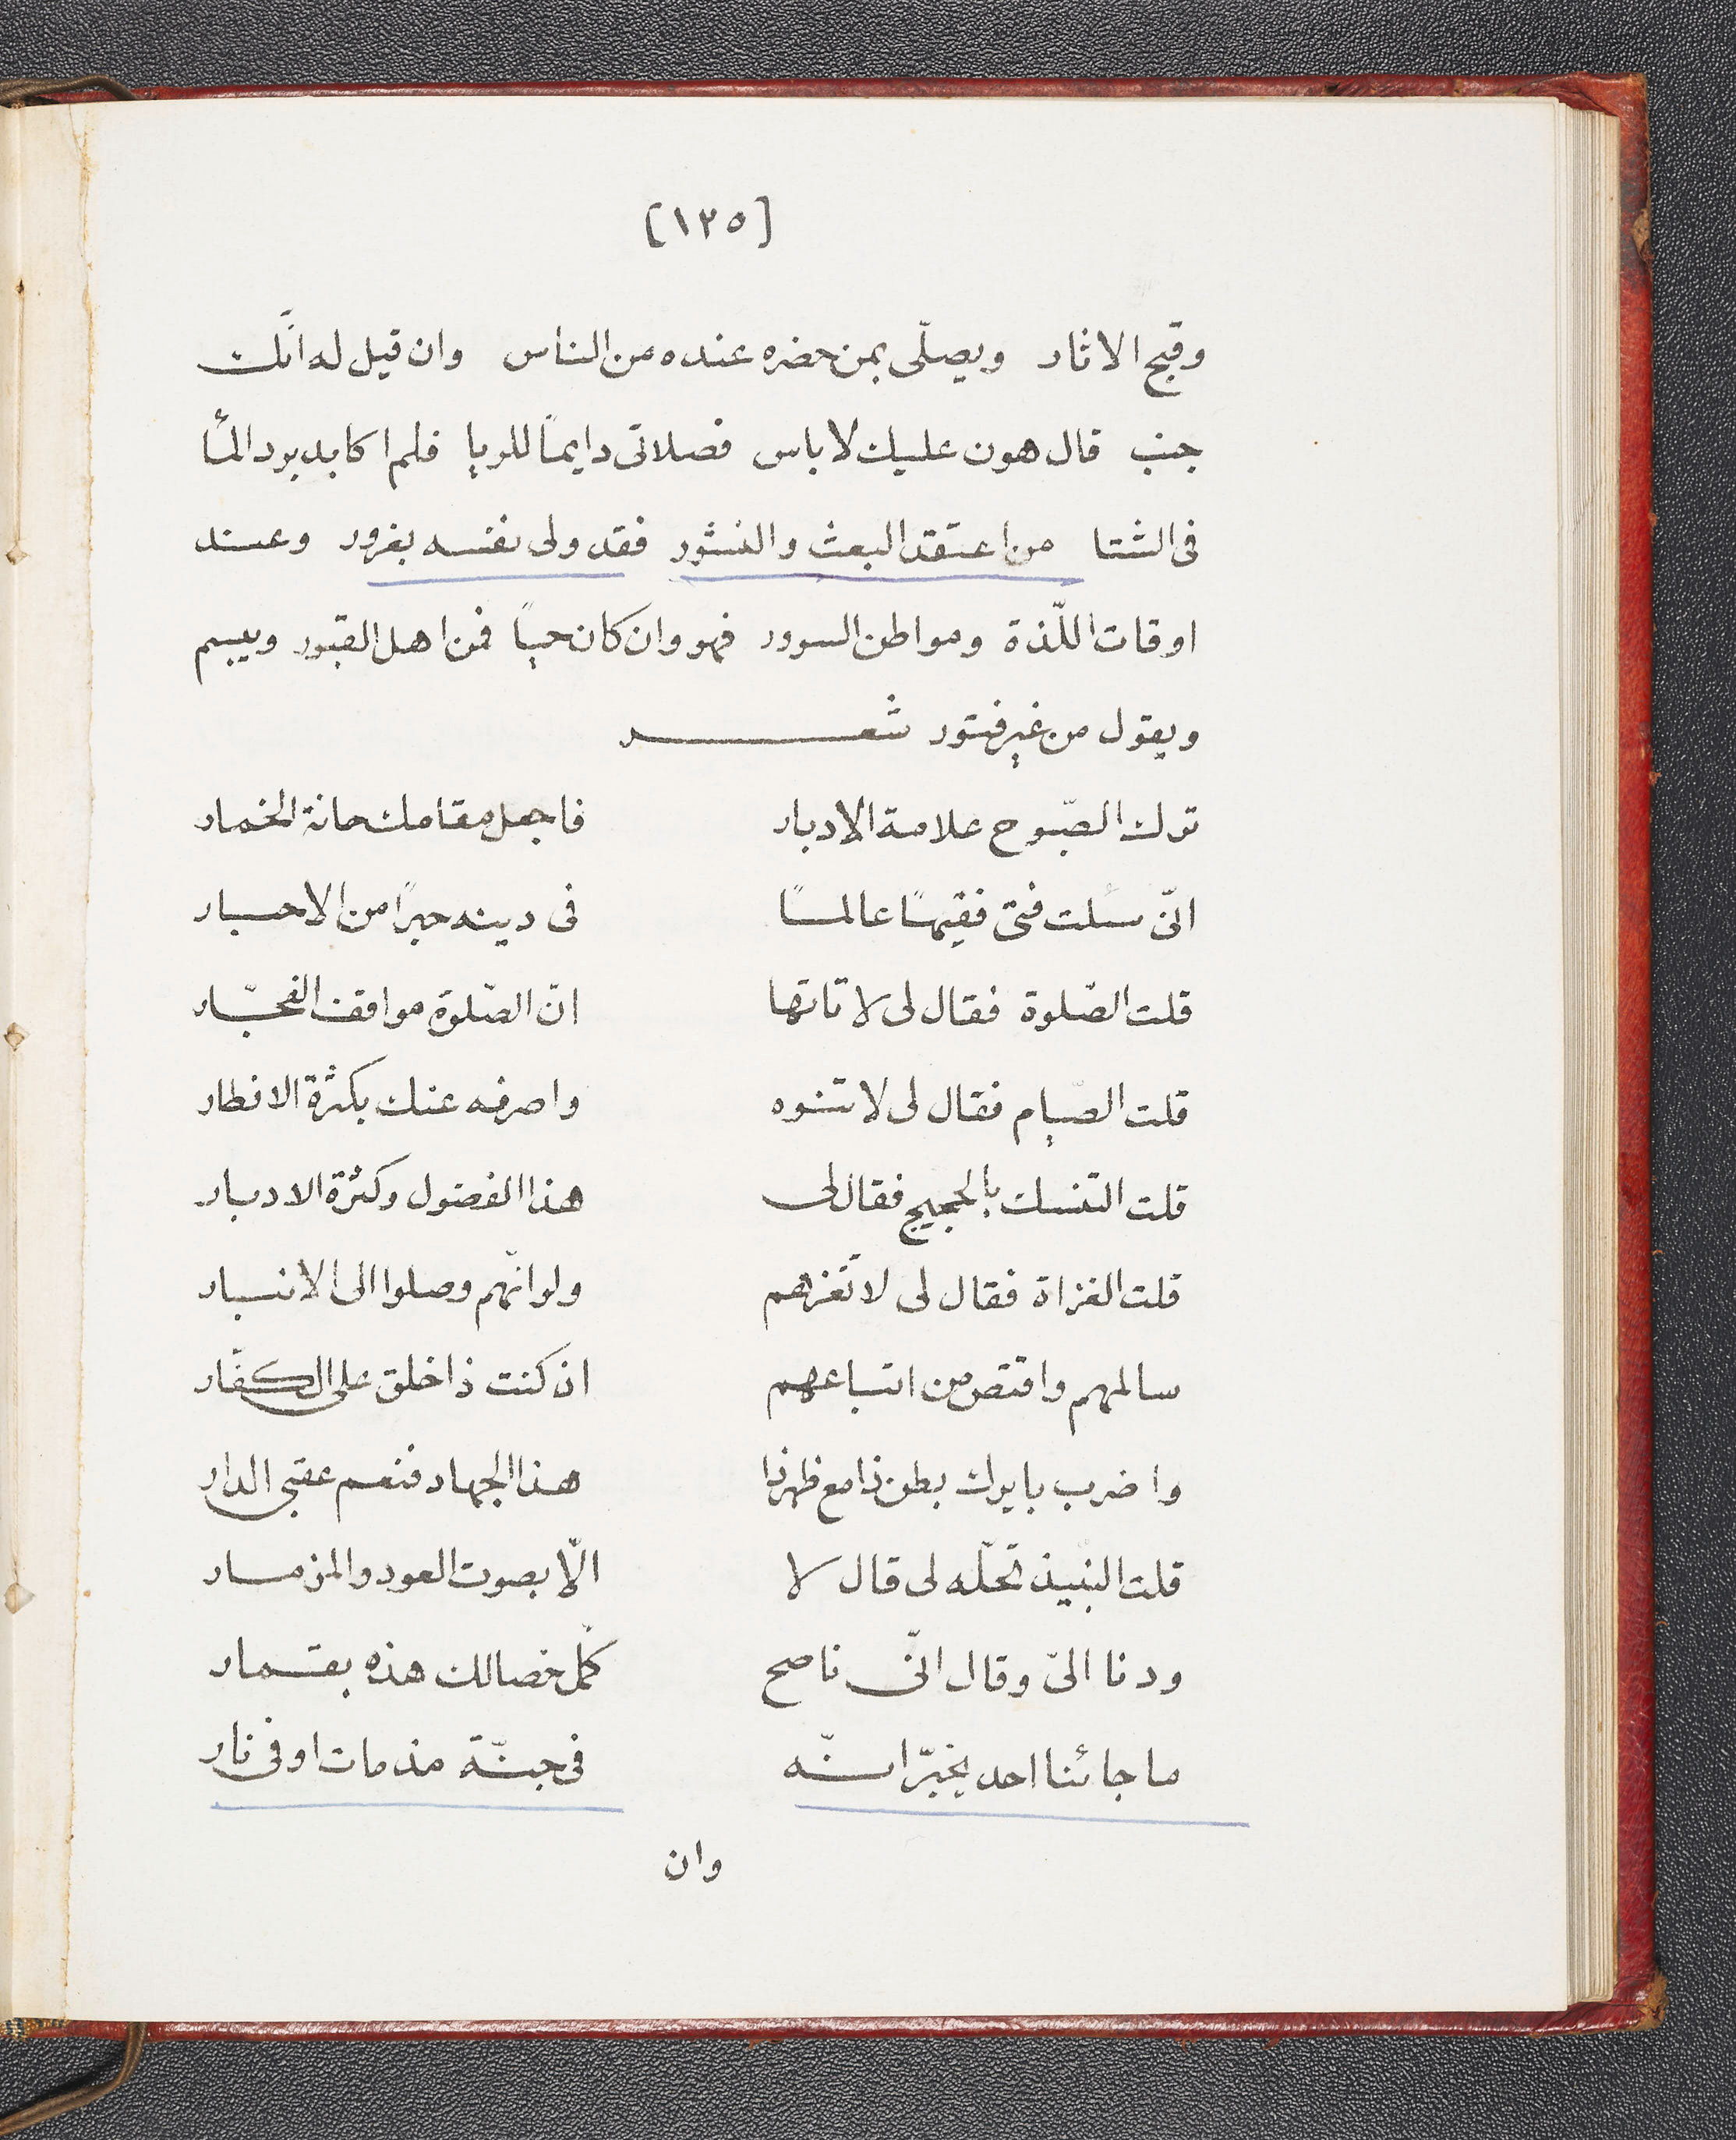 [١٢٥]
وقبح الاثار ويصلّى بمن حضره عنده من الناس وان قيل له انّك
جنب قال هون عليك لا باس فصلاتى دايمًا للريا فلم اكابد برد المأ
فى الشتا من اعتقد البعث والنشور فقد ولى نفسه بغرور وعند
اوقات اللّذة ومواطن السرور فهو وان كان حيًا فمن اهل القبور ويبسم
ويقول من غير فتور شعر
ترك الصّبوح علامة الادبار فاجعل مقامك حانة الخمار
انّى سئلت فتى فقيهًا عالمًا فى دينه حبرًا من الاحبار
قلت الصّلوة فقال لى لا تاتها انّ الصّلوة مواقف الفجّار
قلت الصّيام فقال لى لا تنوه واصرفه عنك بكثرة الافطار
قلت التنسك بالحجيج فقال لى هذا الفضول وكثرة الادبار
قلت الغزاة فقال لى لا تغزهم ولو انّهم وصلوا الى الانبار
سالمهم واقتص من اتباعهم ان كنت ذا خلق على الكفّار
واضرب بايرك بطن ذا مع ظهر ذا هذا الجهاد فنعم عقبى الدار
قلت النبيذ تحلّه لى قال لا الّا بصوت العود والمزمار
ودنا الىّ وقال انّى ناصح كمّل خصالك هذه بقمار
ما جائنا احد يخبّر انّه فى جنّة مذ مات او فى نار
وان